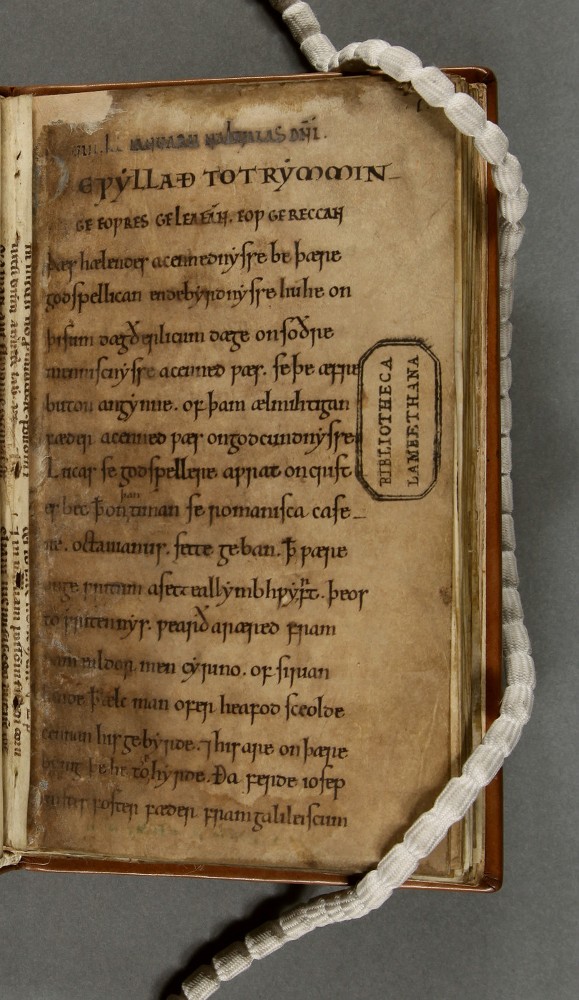 NATALIS DNI.
EǷẎLLAÐ TO TRẎMMIN
GE EOǷRES GELEAFAN. EOǷ GERECCAN
þæs hælendes acennednẏsse be þære
godspellican endebẏrdnẏsse hu he on
þisum dægðerlicum dæge on soðre
menniscnẏsse acenned ƿæs. se þe æfre
buton angẏnne. of þam ælmihtigan
fæder acenned ƿæs on godcundnẏsse
Lucas se godspellere aƿrat on crist
es bec ꝥ on þan timan se romanisca case
re. octauianus. sette geban. ꝥ ƿære
asett eall ẏmbhƿẏrft. þeos
to ƿritennẏs. ƿearð aræred fram
men cẏrino. of sirian
lande ꝥ ælc man ofer heafod sceolde
cennan his gebẏrde. ⁊ his are on þære
bẏrig þe he to hẏrde. Ða ferde iosep
cristes foster fæder fram galileiscum
BIBLIOTHECA
LAMBETHANA